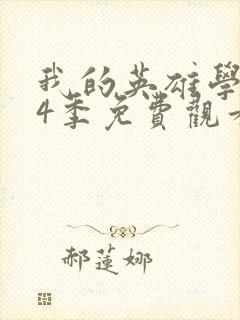 我的英雄學
4筆免費觀
郝蓮娜